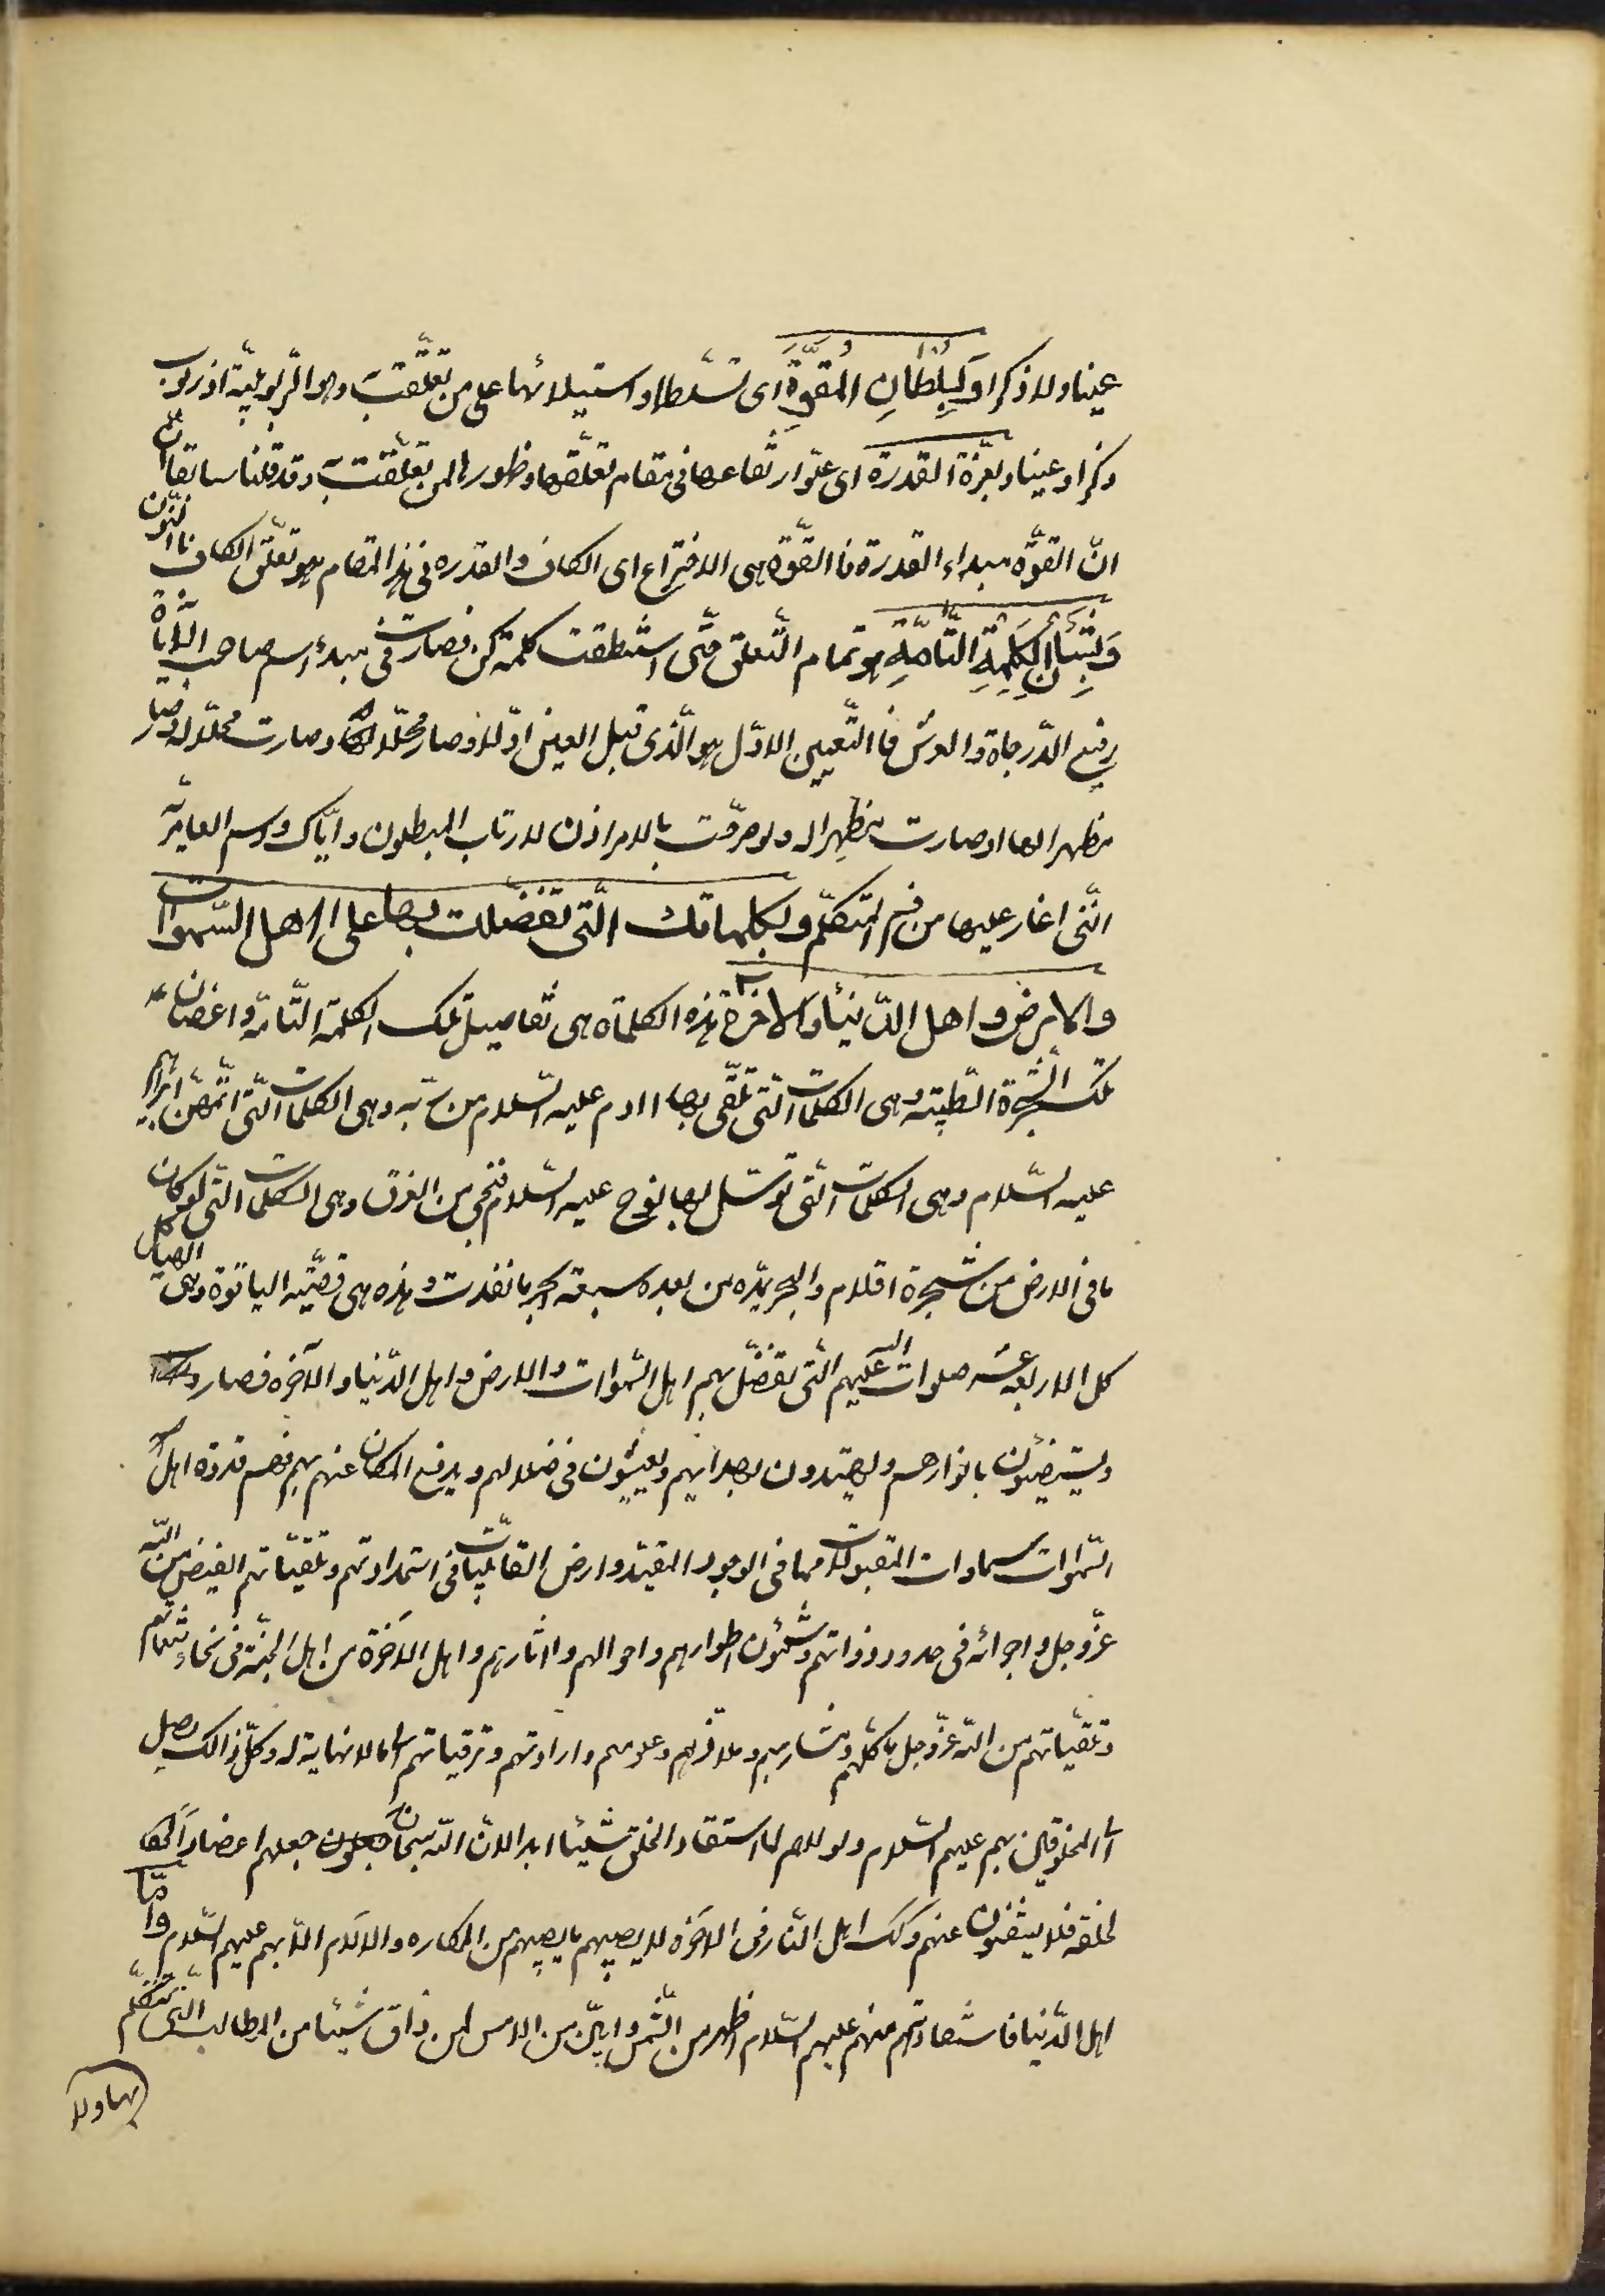 عينا ولا ذكرا وَبِسُلْطانِ القُوَّةِ اى تسلطها واستيلائها على من تعلّقت به وهو الربوبيّة اذ مربوب
ذكرا وعينا وبعزّة القدرة اى علوّ ارتفاعها فى مقام تعلّقها وظهورها لمن تعلّقت به وقد قلنا سابقا
انّ القوّه مبداء القدرة فالقوّة هى الاختراع اى الكاف والقدره فى هذا المقام هو تعلّق الكاف بالنون
وَبِشَأْنِ الكَلِمَةِ التَّامَّةِ هو تمام التّعلق حتّى استنطقت كلمة كن فصارت فى مبدء اسم صاحب
رفيع الدّرجاة والعرش فالتّعيين الاوّل هو الّذى قبل العين اوّلا وصار محلّا لها وصارت محلّا له وصار
مظهرا لها وصارت مظهرا له ولو صرّحت بالامر اذن لارتاب المبطلون وايّاك واسم العامريّه
انّنى اغار عليها من فم المتكلّم وبكلماتك الّتى تفضّلت بها على اهل السّموات
والارض واهل الدّنيا والاخرة هذه الكلماة هى تفاصيل تلك الكلمة التّامّة واغصان
تلك الشّجرة الطّيّبة وهى الكلمات الّتى تلقّى بها ادم عليه السّلام من ربّه وهى الكلمات الّتى اتمّهنّ ابراهيم
عليه السّلام وهى الكلمات الّتى توسّل بها نوح عليه السّلام فنجى من الغرق وهى الكلمات الّتى لو كان
ما فى الارض من شجرة اقلام والبحر يمدّه من بعده سبعة ابحر ما نفدت وهذه هى قصبة الياقوة وهى الهياكل
كل الاربعة عشر صلوات الله عليهم الّتى تفضّل بهم اهل السّموات والارض واهل الدّنيا والآخره فصاروا
ويستضيئون بانوارهم ويهتدون بهداهم ويعيشون فى ظلالهم ويدفع المكاره عنهم بهم فهم قدوة اهل
السّموات سماوات المقبولات مما فى الوجود المقيّد وارض القابليّات فى استمداداتهم وتلقّياتهم الفيض من الله
عزّ وجل واجرائه فى حدود ذواتهم وشئون اطوارهم واحوالهم واثارهم واهل الاخرة من اهل الجنّة فى انحاء تنعّماتهم
وتلقّياتهم من الله عزّ وجل مآكلهم ومشاربهم وملاذّهم وعلومهم واراداتهم وترقياتهم الى ما لا نهاية له وكلّ ذالك يصل
الى المخلوقين بهم عليهم السّلام ولولاهم لما استفاد الخلق شيئا ابدا لانّ الله سبحانه جعلهم اعضادا
لخلقه فلا يستغنون عنهم وكك اهل النّار فى الآخره لا يصيبهم ما يصيبهم من المكاره والآلام الّا بهم عليهم السّلام وامّا
اهل الدّنيا فاستفادتهم منهم عليهم السّلام اظهر من الشّمس وابين من الامس لمن ذاق شيئا من المطالب الّتى نتكلّم
بها ولا